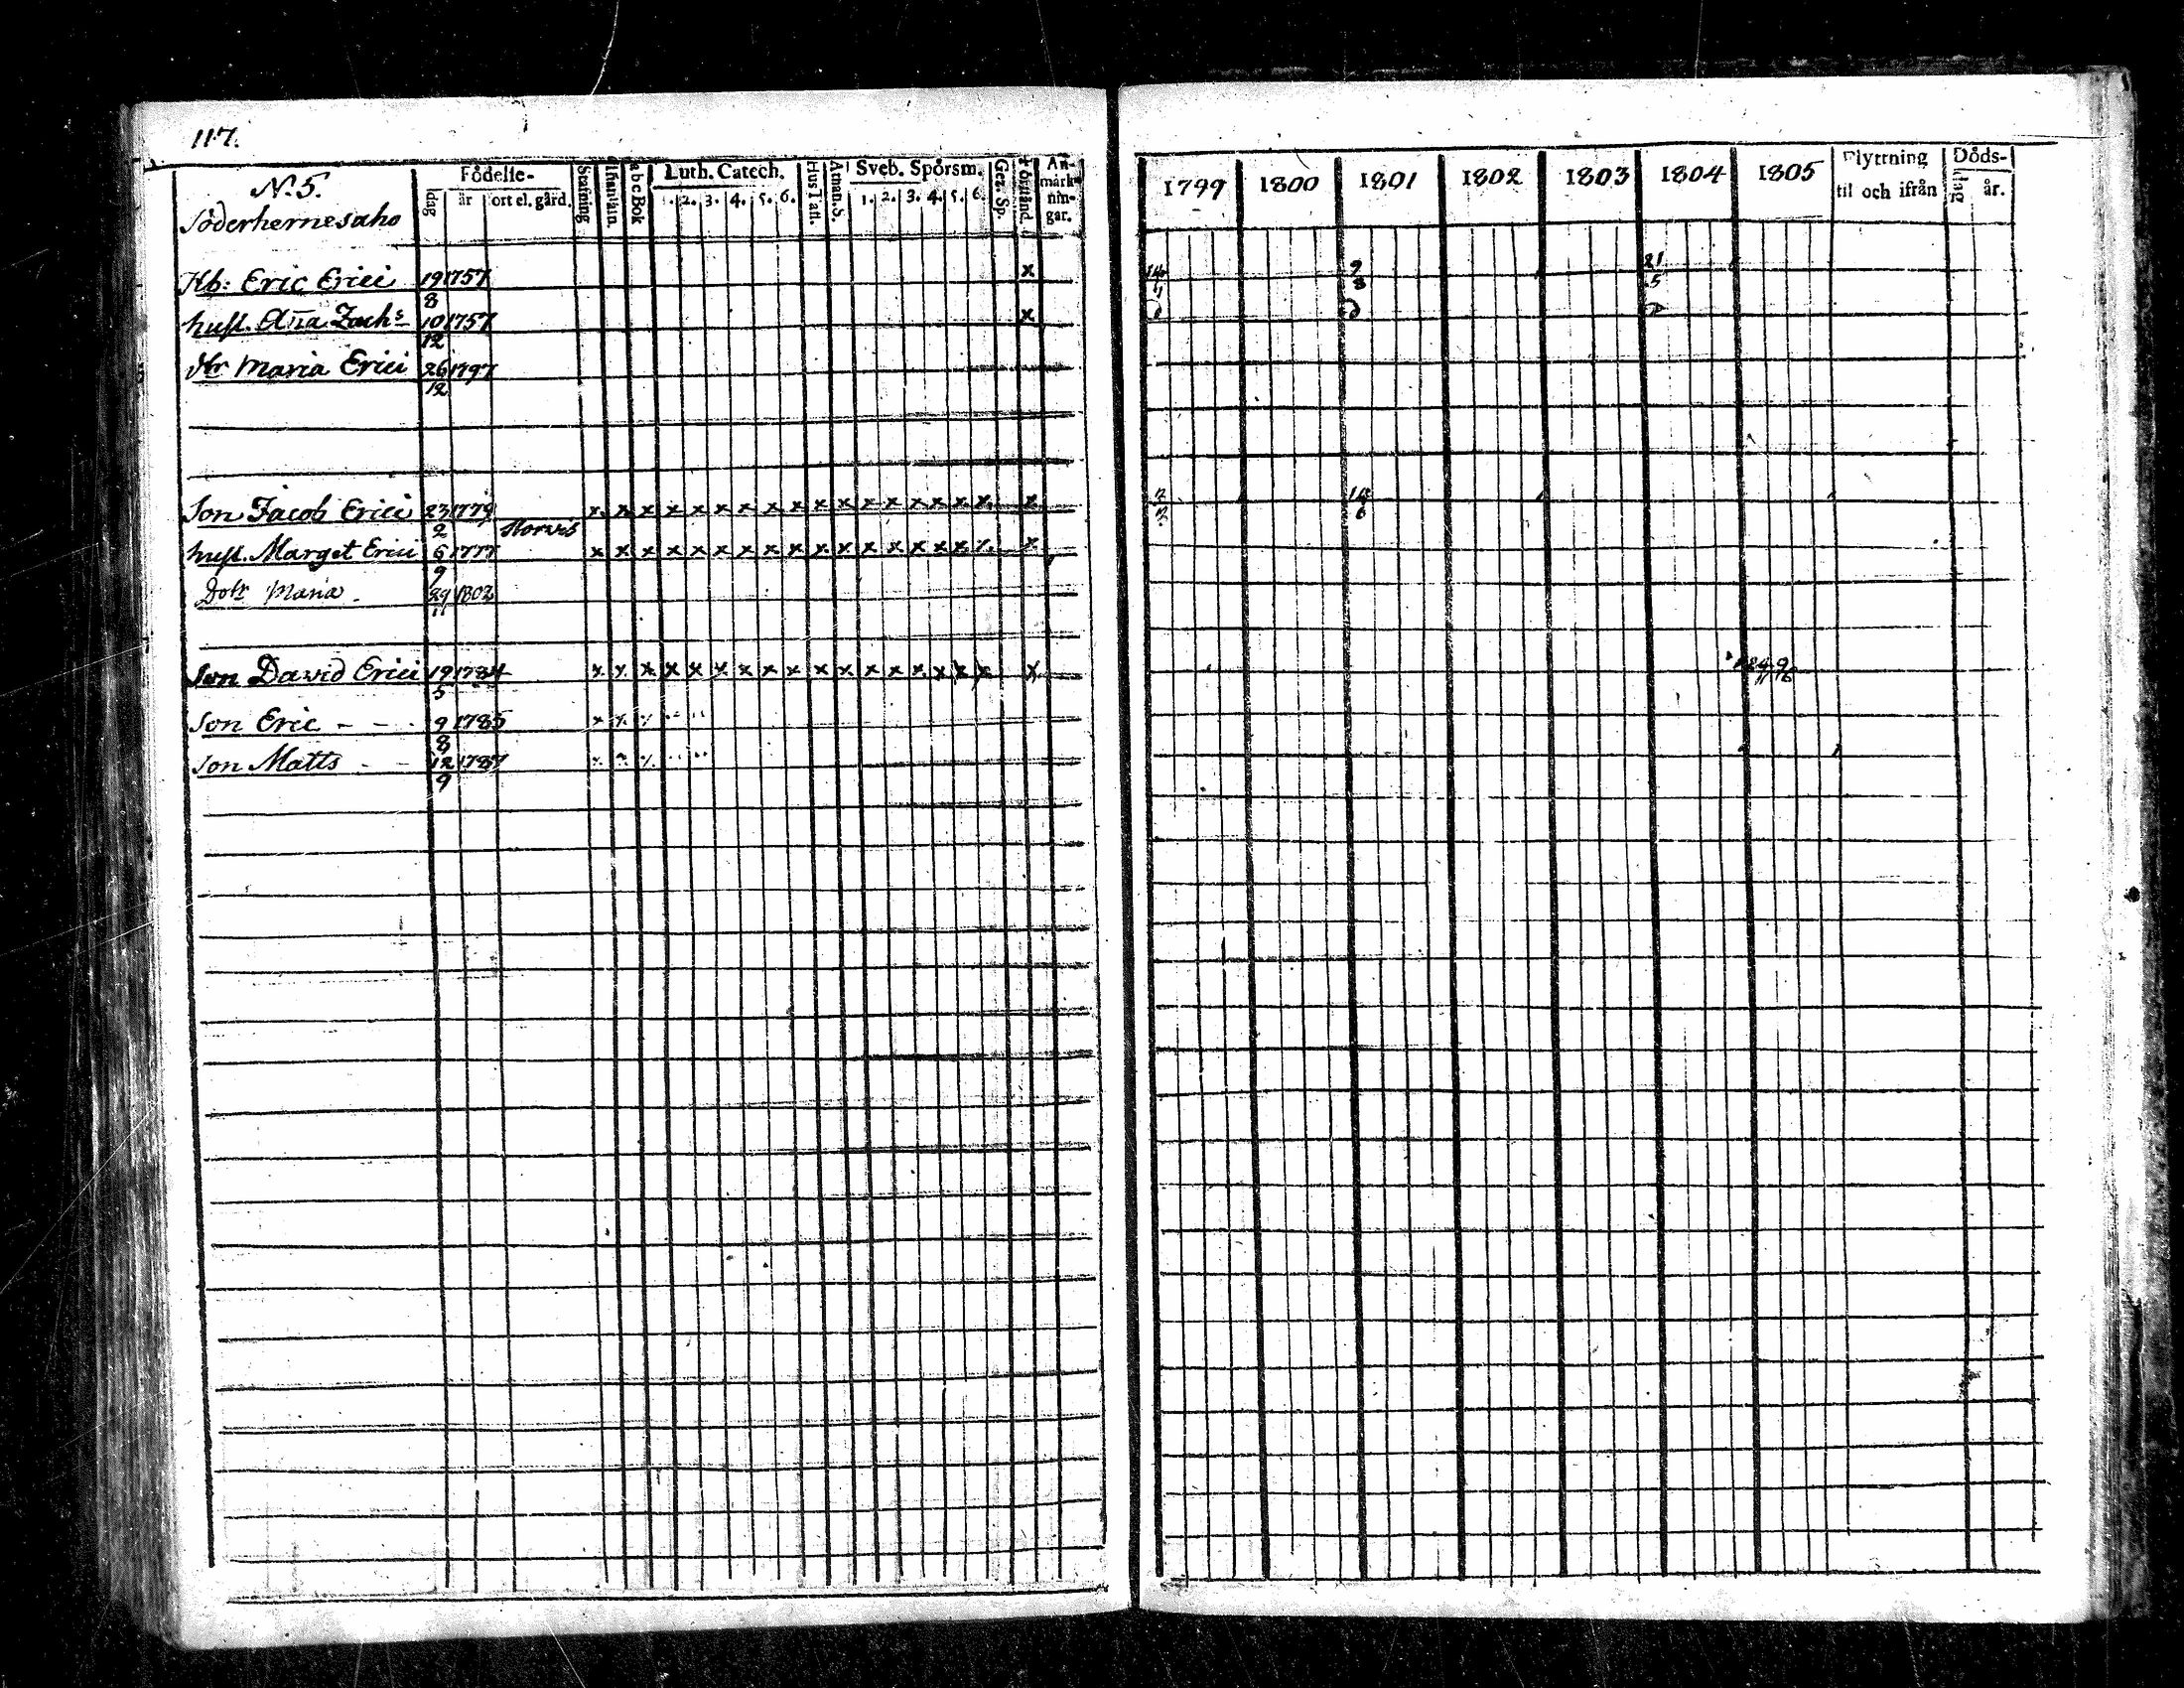 117.
N:5.
Söderhernesaho
Födelse-
dag år ort el. gård.
Stafning
Abc Bok
Luth. Catech.
1. 2. 3. 4. 5. 6.
Hus Tafl.
Athan. S.
Sveb. Spörsm.
1. 2. 3. 4. 5. 6.
Gez. Sp.
Förstånd.
An-
märk-
nin-
gar.
1799 1800 1801 1802 1803 1804 1805
Flyttning
til och ifrån
Döds-
dag år.
Hb: Eric Erici 19/8 1757 x 14/4 9/8 21/5
hust. Aña Zachs 10/12 1757 x
dtr Maria Erici 26/12 1797
Son Jacob Erici 23/2 1779 x x x x x x x x x x x x x x x x x x 3/2 14/6
hust. Marget Erici 6/9 1777 x x x x x x x x x x x x x x x x x x
Dotr Maria 29/11 1802
Son David Erici 19/5 1784 x x x x x x x x x x x x x x x x x x
Son Eric - - - 9/8 1785 x x
Son Matts - - 12/9 1787